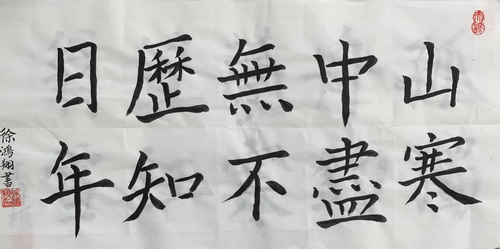 山寒
中盡
無不
歷知
日年
徐鴻翔書